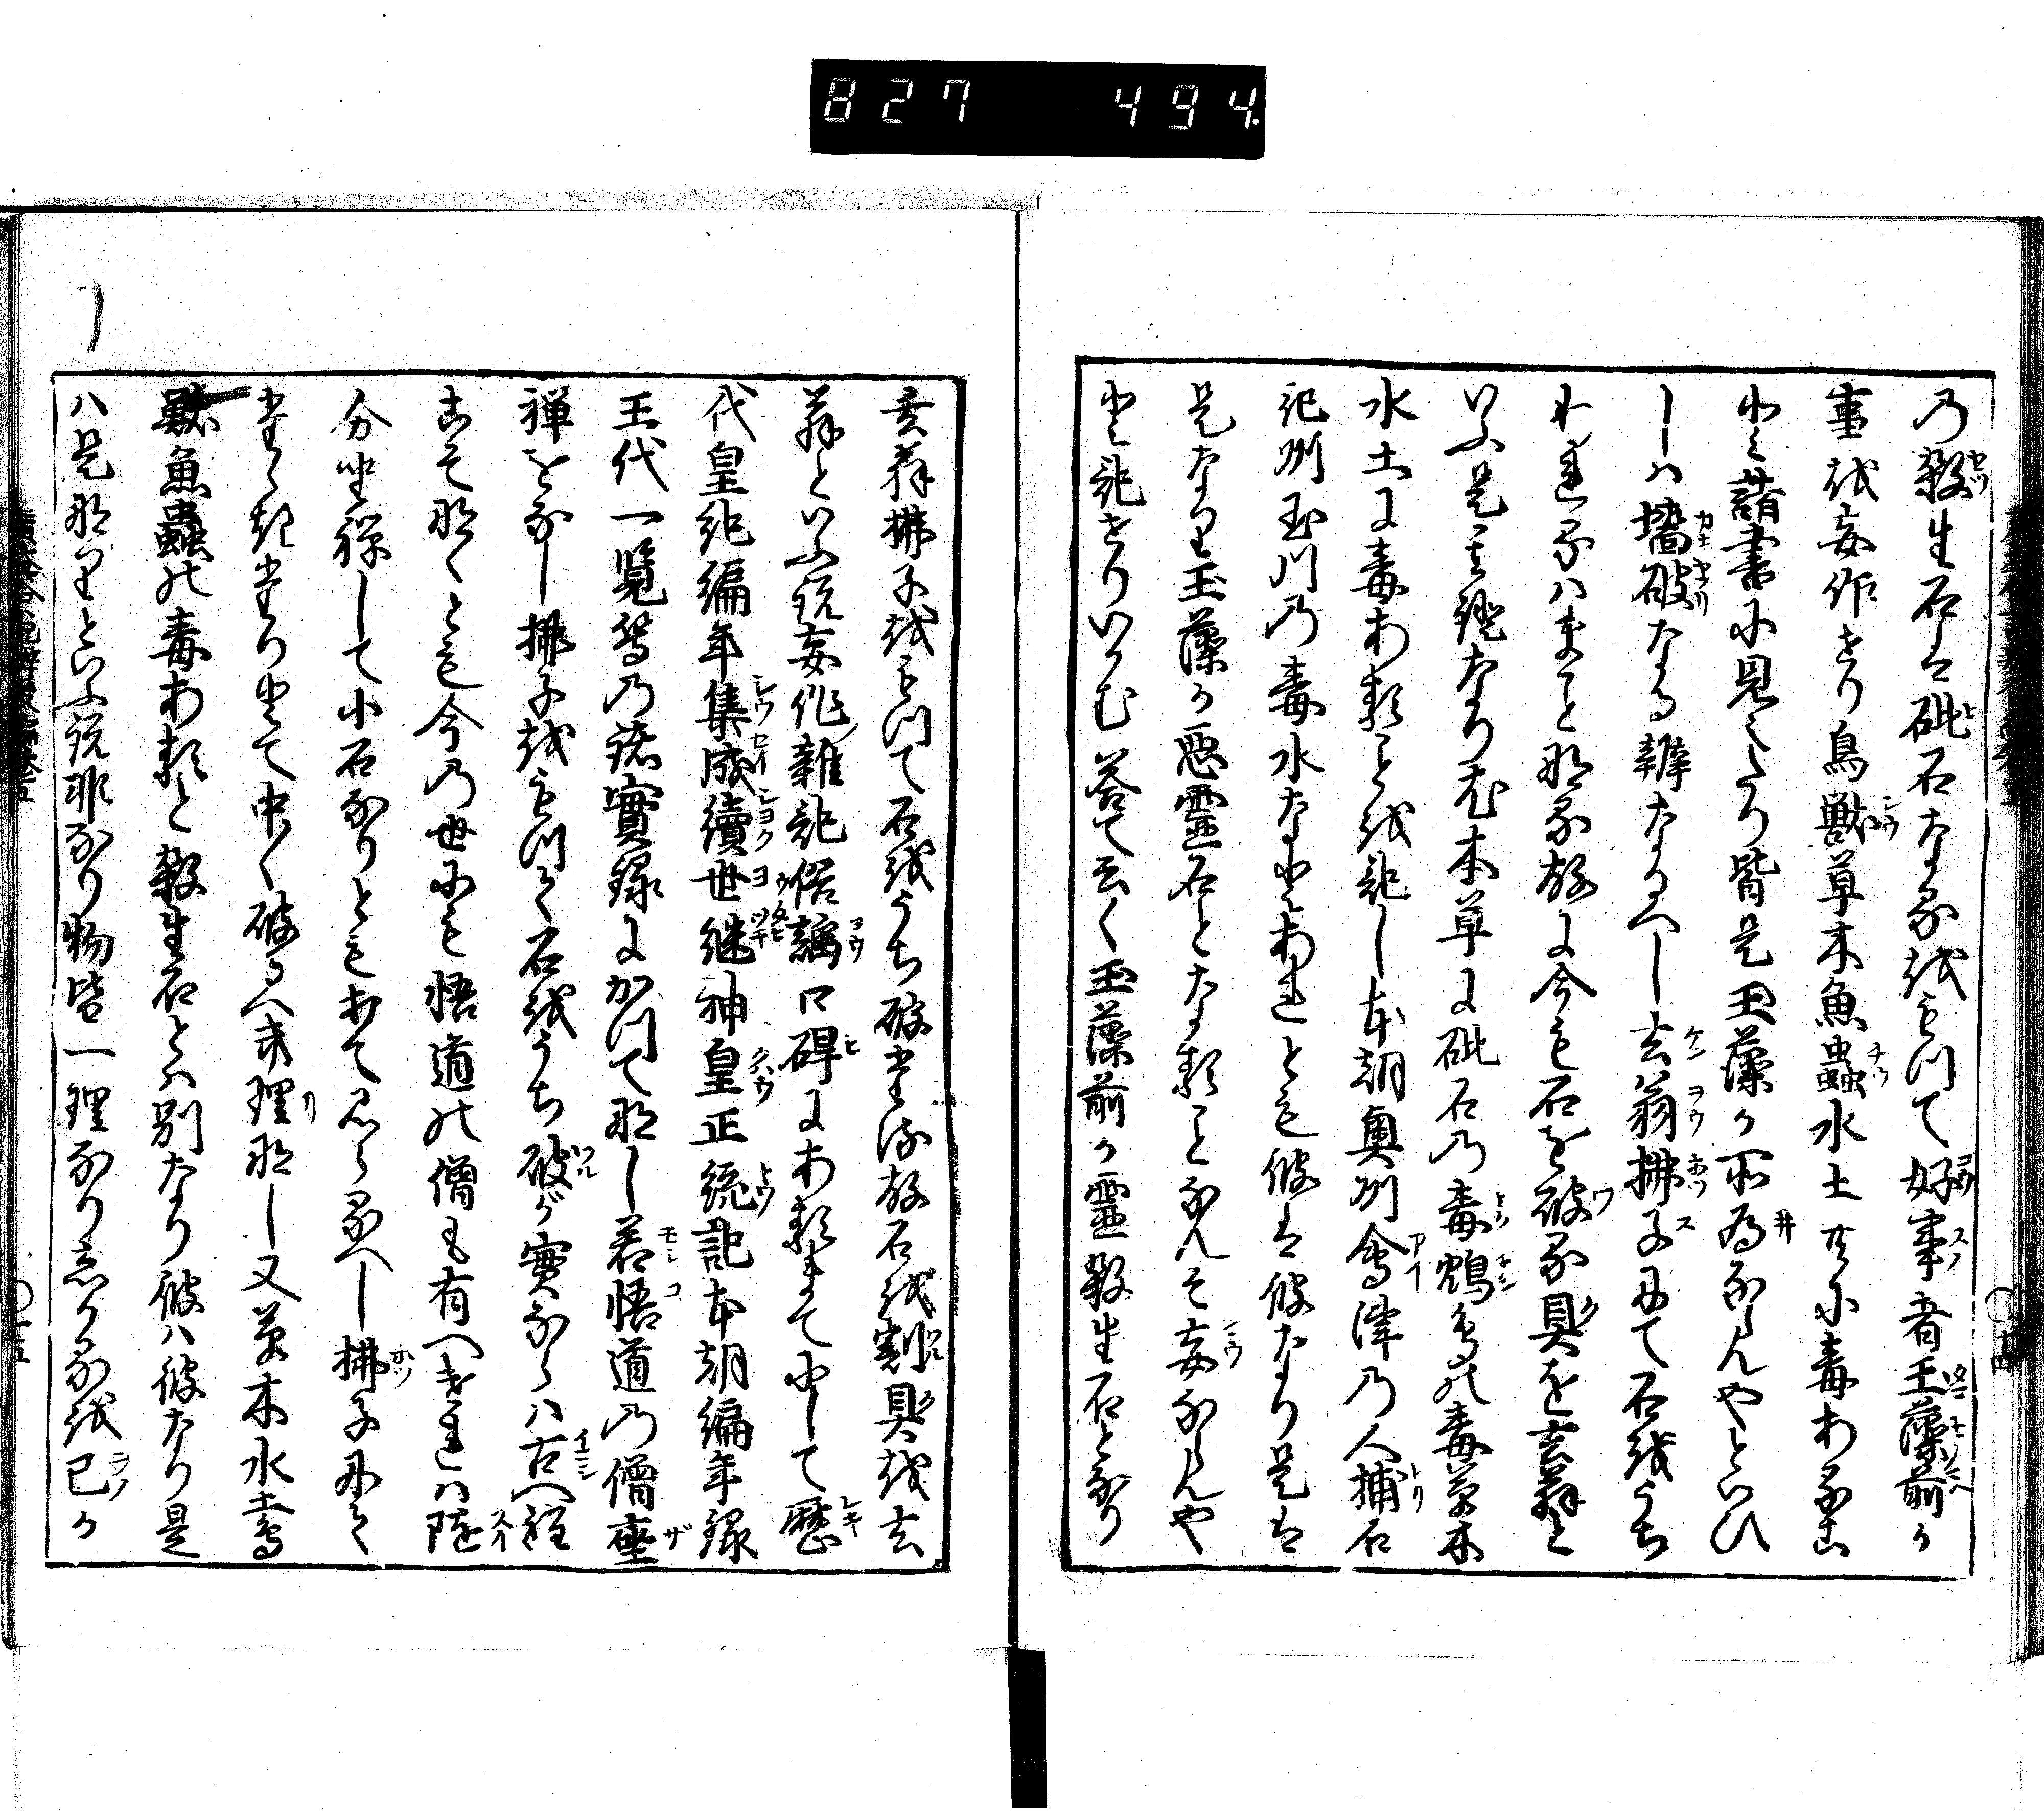 827 494.
乃殺生石は砒石なるをもつて好事者玉藻前か
事を妄作せり鳥獣草木魚蟲水土共に毒あるこ
と諸書に見えたり皆是玉藻か所為ならんやといひ
しハ墻破なる辨なるへし玄翁拂子にて石をうち
われるハまことなる故に今も石を破る具を玄翁と
いふ是其證なり尤本草に砒石乃毒鴆鳥の毒草木
水土に毒あることを記し本朝奥州會津乃人捕石
紀州玉川乃毒水なとあれとも彼は彼なり是は
是なり玉藻か悪靈石となることなんそ妄ならんや
と記せりいかむ答て云く玉藻前か靈殺生石となり
玄翁拂子をもつて石をうち破たる故石を割具を玄
翁といふ説妄作雜記俗謡口碑にあるまてにして歴
代皇紀編年集成續世継神皇正統記本朝編年録
王代一覧等乃諸實録にかつてなし若悟道乃僧座
禅をなし拂子をもつて石をうち破が實ならハ古へ程
こそなくとも今乃世にも悟道の僧も有へきれは随
分坐禅して小石なりともあて見らるへし拂子にて
たゝきたりとて中〱破るへき理なし又草木水土鳥
獣魚蟲の毒あると殺生石とハ別なり彼ハ彼なり是
ハ是なりといふ説非なり物皆一理なり意かるを己か